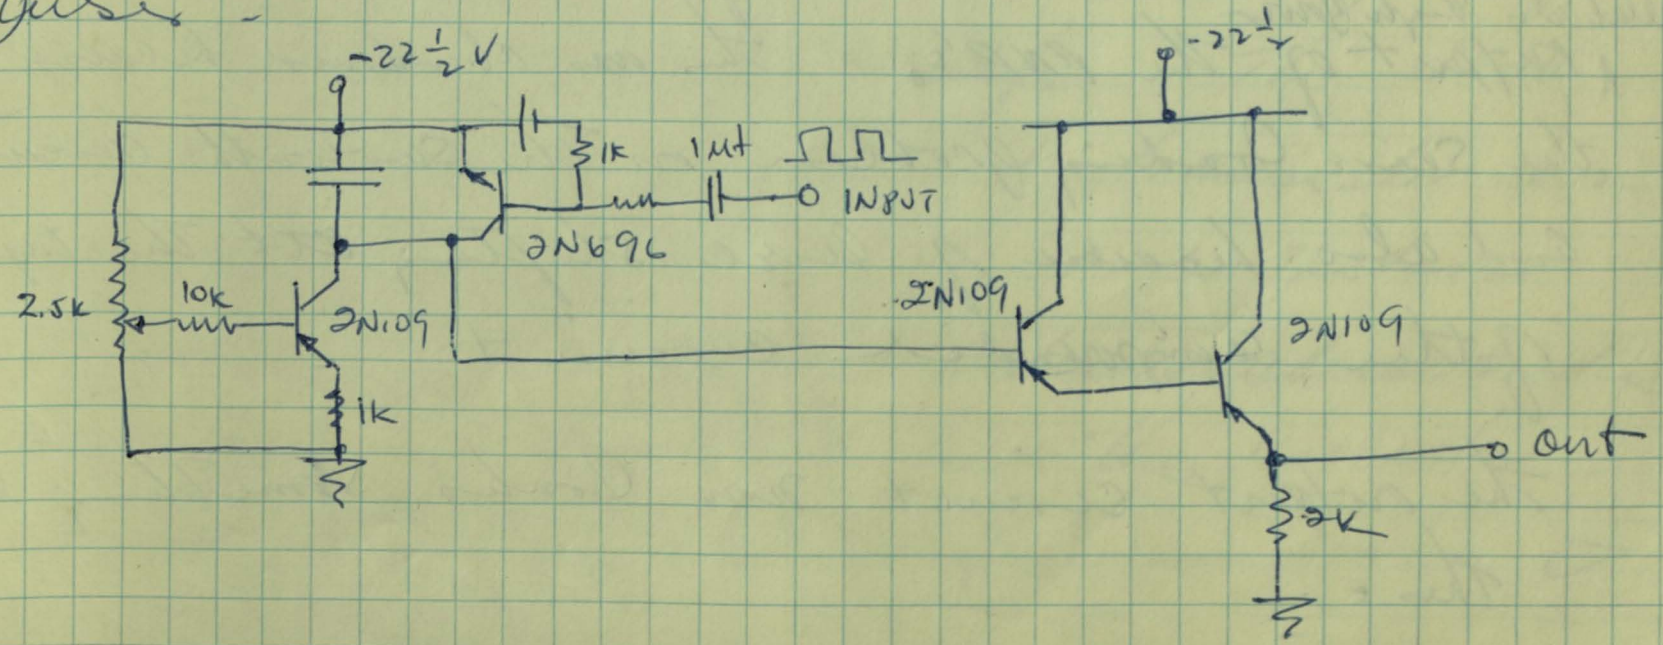 -22 1/2 V
-22 1/2
1K
1μf
INPUT
2N696
2.5K
10K
2N109
1K
2N109
2N109
out
2K